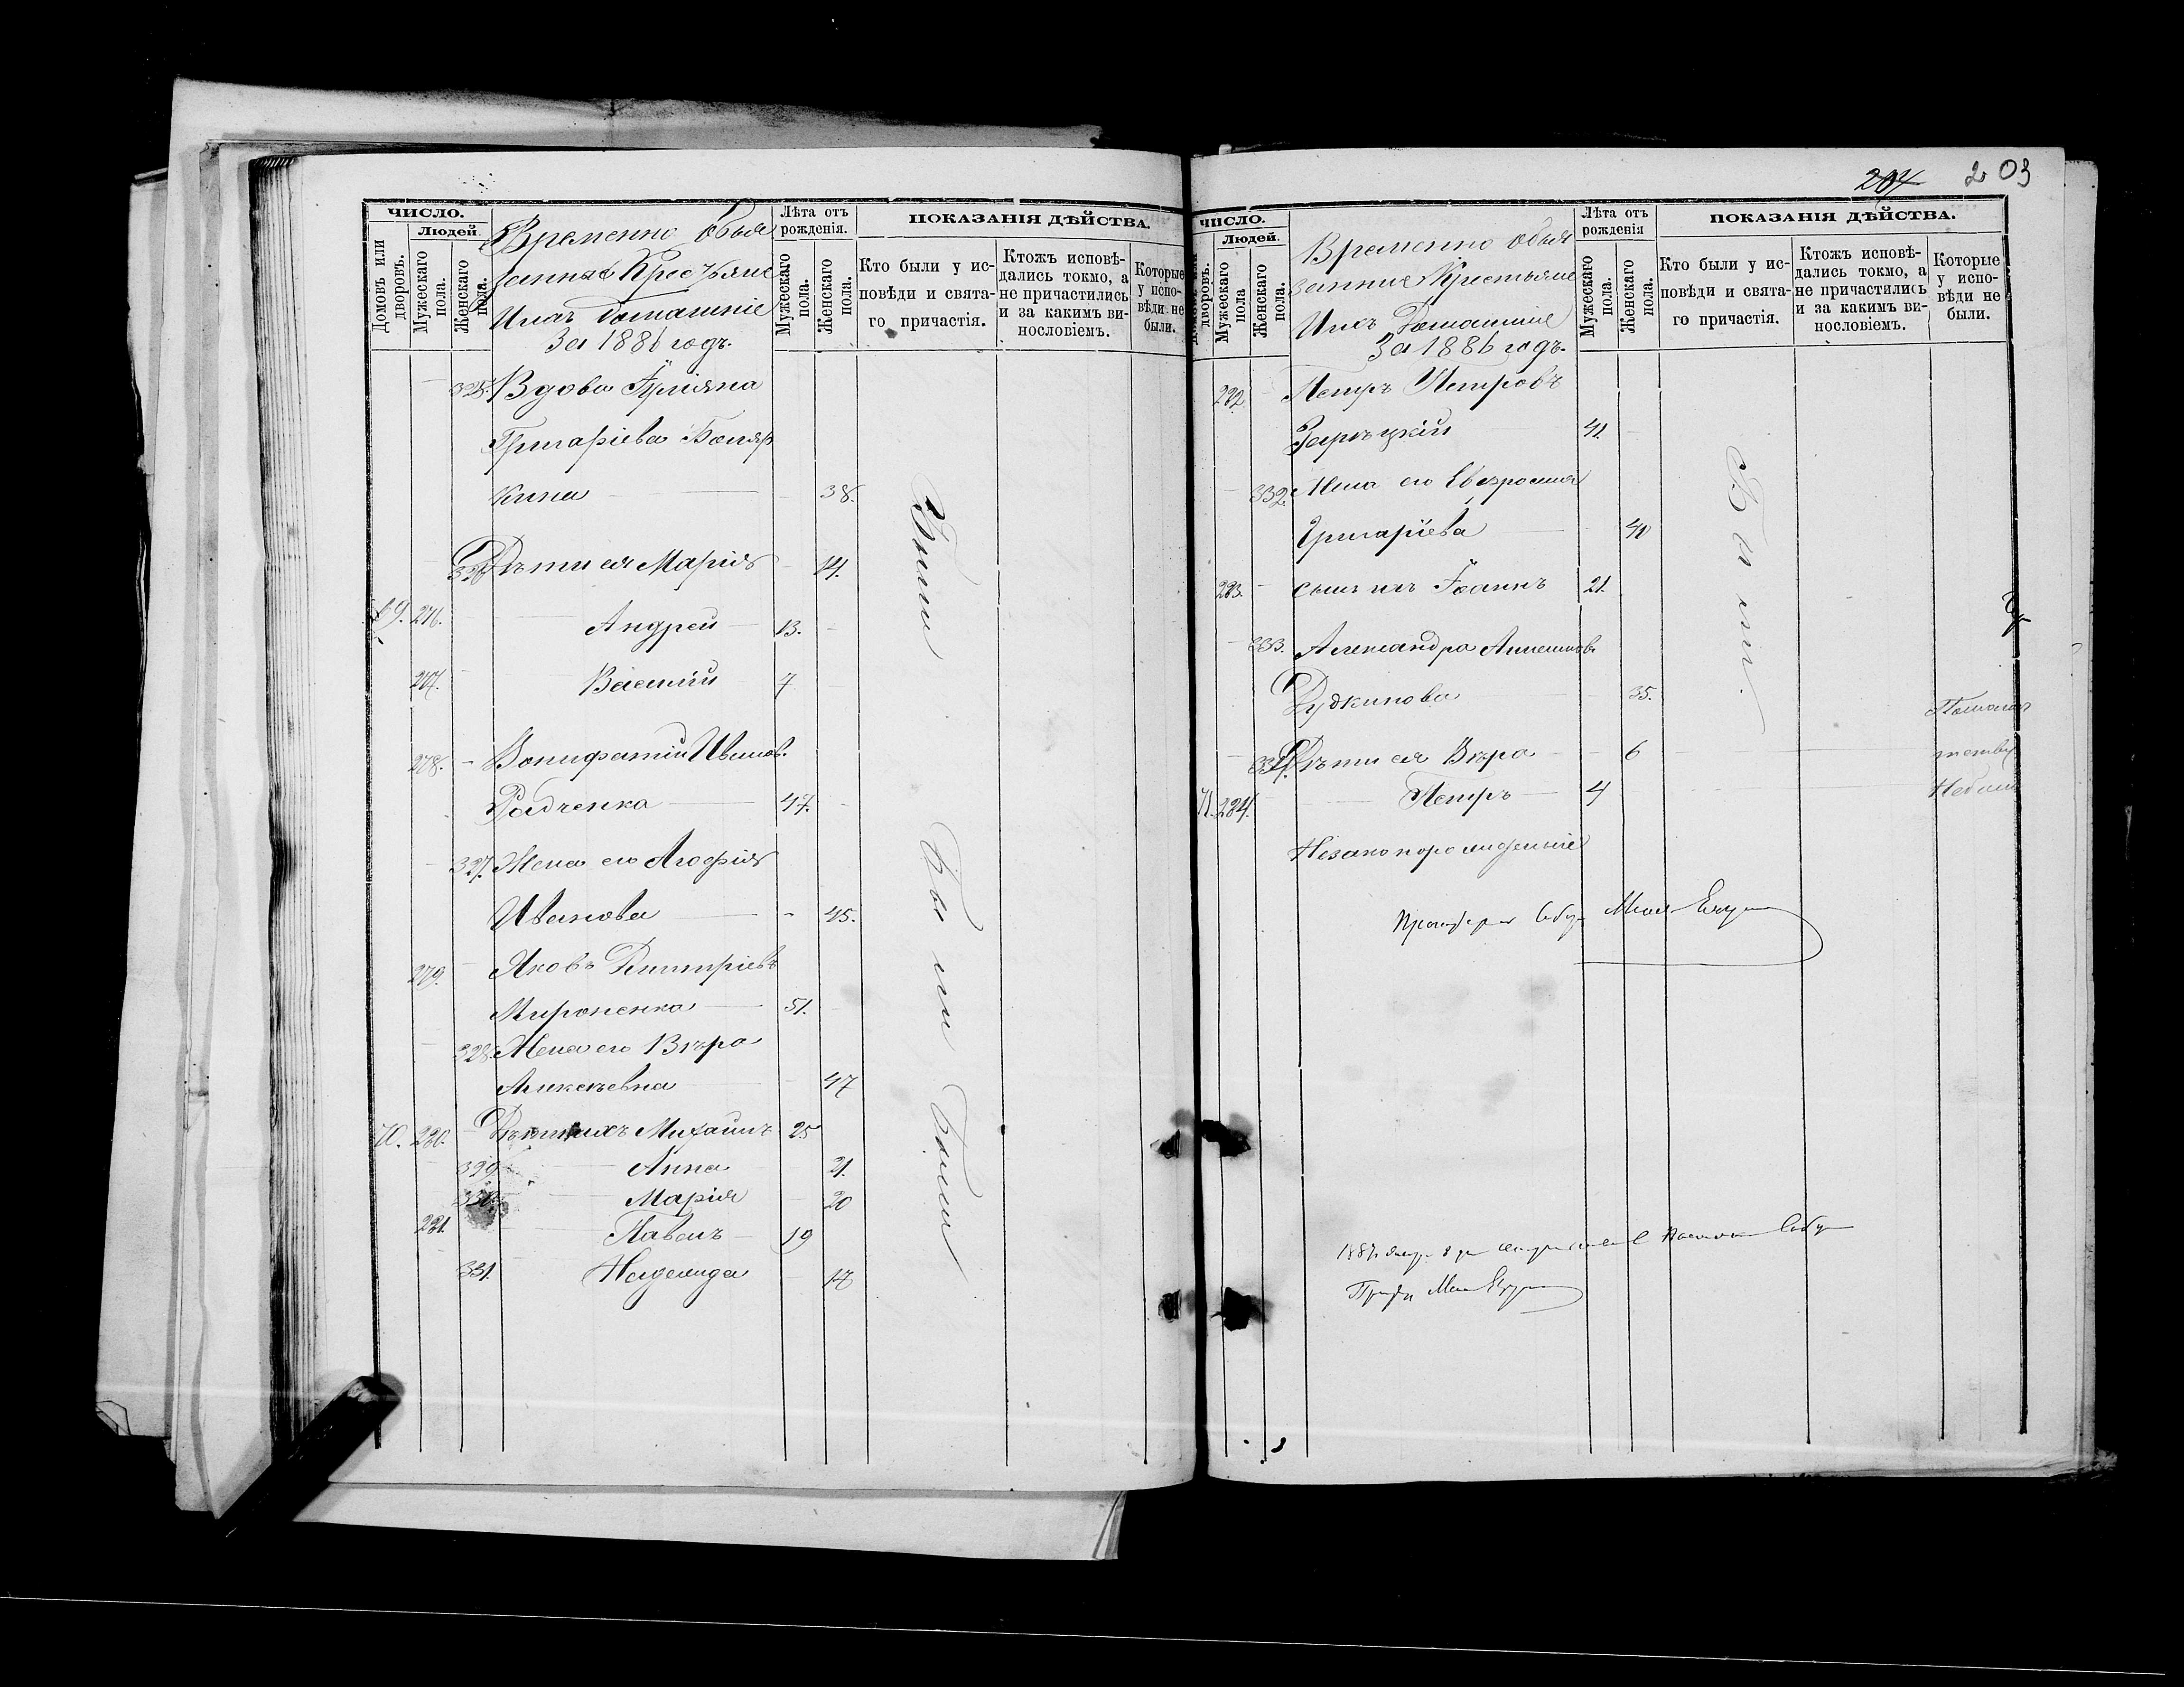 ЧИСЛО.
Людей.
Домовъ или дворовъ.
Мужескаго пола.
Женскаго пола.
Временно обыя
занные Крестьяне
Ихъ домашніе
За 1886 годъ.
Лѣта отъ рожденія.
Мужескаго пола.
Женскаго пола.
ПОКАЗАНІЯ ДѢЙСТВА.
Кто были у ис-
повѣди и свята-
го причастія.
Ктожъ исповѣ-
дались токмо, а
не причастились
и за какимъ ви-
нословіемъ.
Которые
у испо-
вѣди не
были.
325. Вдова Іуліяна
Григаріева
кина 38.
326 Дѣти ея Марія 14.
69. 276. Андрей 13.
277. Василій 7
278. Вонифатій Иванов.
Радченко 47.
327. Жена его Агафія
Иванова 45.
279. Яковъ Димитріевъ
Мироненко 51.
328. Жена его Вѣра
Алексѣевна 47
70. 280. Дѣти ихъ Михаилъ 25
329 Анна 21.
330. Марія 20
281. Павелъ 19
331. Надежда 17
Были
Были
Были
204 203
ЧИСЛО.
Людей.
дворовъ.
Мужескаго пола
Женскаго пола.
Временно обыя
занные Крестьяне
Ихъ Домашніе
За 1886 годъ.
Лѣта отъ рожденія
Мужескаго пола.
Женскаго пола.
ПОКАЗАНІЯ ДѢЙСТВА.
Кто были у ис-
повѣди и свята-
го причастія.
Ктожъ исповѣ-
дались токмо, а
не причастились
и за какимъ ви-
нословіемъ.
Которые
у испо-
вѣди не
были.
282 Петръ Петровъ
Зарѣцкій 41.
332. Жена его Евфросинія
Григаріева 40
283. сынъ ихъ Іоаннъ 21.
333. Александра
Дудкинова 35.
334. Дѣти ея Вѣра 6
71. 284. Петръ 4
Незаконорожденніе
Были